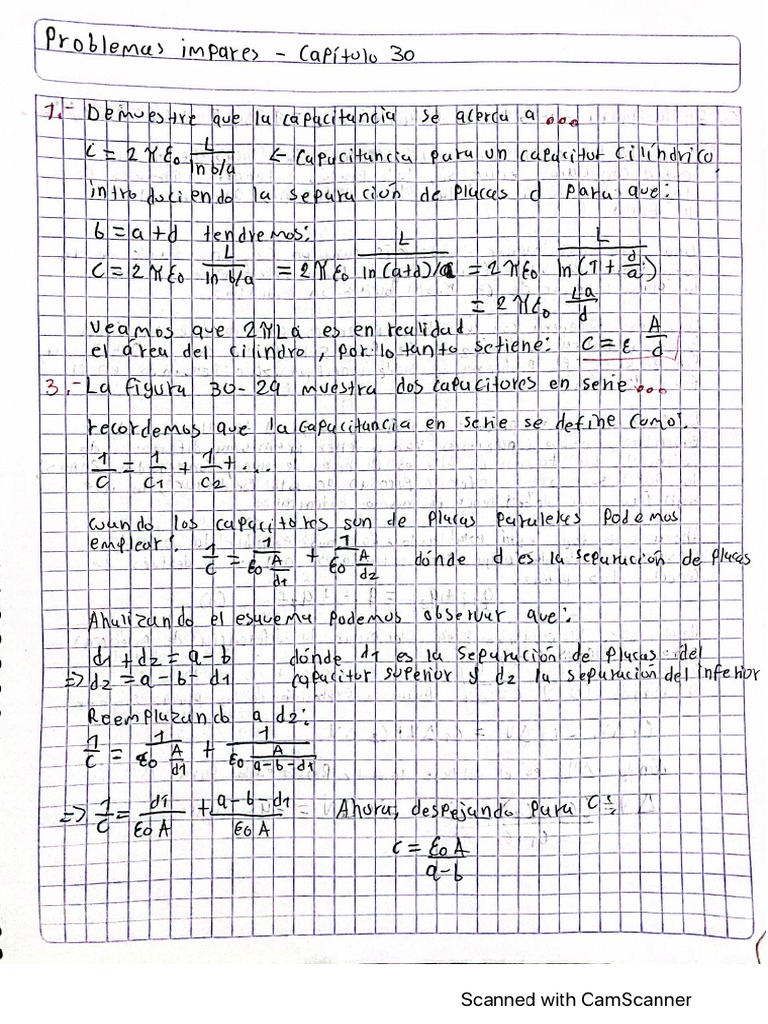 Problemas impares - Capítulo 30
1.- Demuestre que la capacitancia se acerca a ...
C = 2πε₀ L/(ln b/a) ← Capacitancia para un capacitor cilíndrico,
introduciendo la separación de placas d para que:
b = a+d tendremos:
C = 2πε₀ L/(ln b/a) = 2πε₀ L/(ln (a+d)/a) = 2πε₀ L/(ln (1 + d/a))
= 2πε₀ La/d
veamos que 2πLa es en realidad
el área del cilindro, por lo tanto se tiene: C = ε A/d
3.- La figura 30-29 muestra dos capacitores en serie ...
recordemos que la capacitancia en serie se define como:
1/C = 1/C1 + 1/C2 + ...
cuando los capacitores son de placas paralelas podemos
emplear: 1/C = 1/(ε₀ A/d1) + 1/(ε₀ A/d2) dónde d es la separación de placas
Analizando el esquema podemos observar que:
d1 + d2 = a-b dónde d1 es la separación de placas del
=> d2 = a-b-d1 capacitor superior y d2 la separación del inferior
Reemplazando a d2:
1/C = 1/(ε₀ A/d1) + 1/(ε₀ A/(a-b-d1))
=> 1/C = d1/(ε₀ A) + (a-b-d1)/(ε₀ A) = Ahora, despejando para C:
C = ε₀ A/(a-b)
Scanned with CamScanner